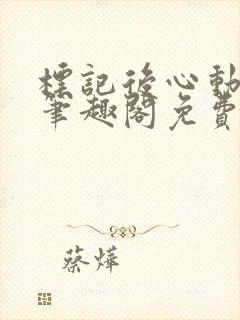 標記後心動
筆趣閣免費
蔡燁